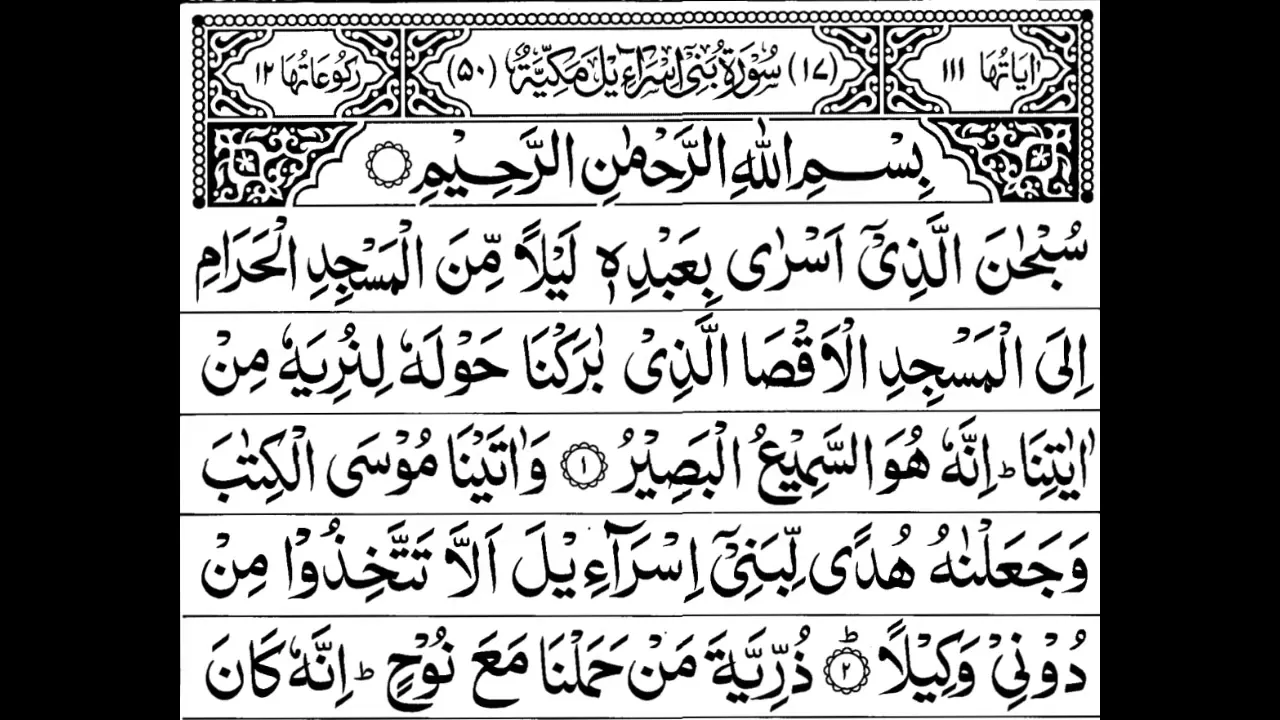 اٰیَاتُهَا ١١١ (١٧) سُوْرَةُ بَنِیْۤ اِسْرَآءِیْلَ مَكِّیَّةٌ (٥٠) رُكُوْعَاتُهَا ١٢
بِسْمِ اللّٰهِ الرَّحْمٰنِ الرَّحِیْمِ
سُبْحٰنَ الَّذِیْۤ اَسْرٰی بِعَبْدِهٖ لَیْلًا مِّنَ الْمَسْجِدِ الْحَرَامِ
اِلَی الْمَسْجِدِ الْاَقْصَا الَّذِیْ بٰرَكْنَا حَوْلَهٗ لِنُرِیَهٗ مِنْ
اٰیٰتِنَا ؕ اِنَّهٗ هُوَ السَّمِیْعُ الْبَصِیْرُ ١ وَ اٰتَیْنَا مُوْسَی الْكِتٰبَ
وَ جَعَلْنٰهُ هُدًی لِّبَنِیْۤ اِسْرَآءِیْلَ اَلَّا تَتَّخِذُوْا مِنْ
دُوْنِیْ وَكِیْلًا ؕ ٢ ذُرِّیَّةَ مَنْ حَمَلْنَا مَعَ نُوْحٍ ؕ اِنَّهٗ كَانَ